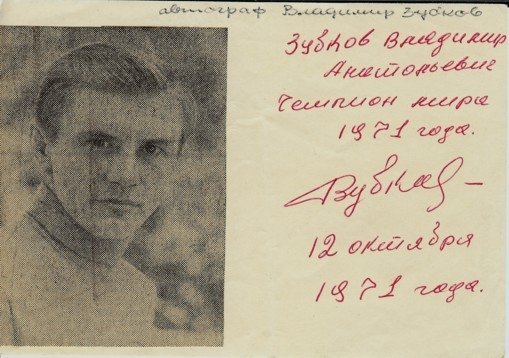 автограф Владимир Зубков
Зубков Владимир
Анатольевич
Чемпион мира
1971 года.
Зубков
12 октября
1971 года.